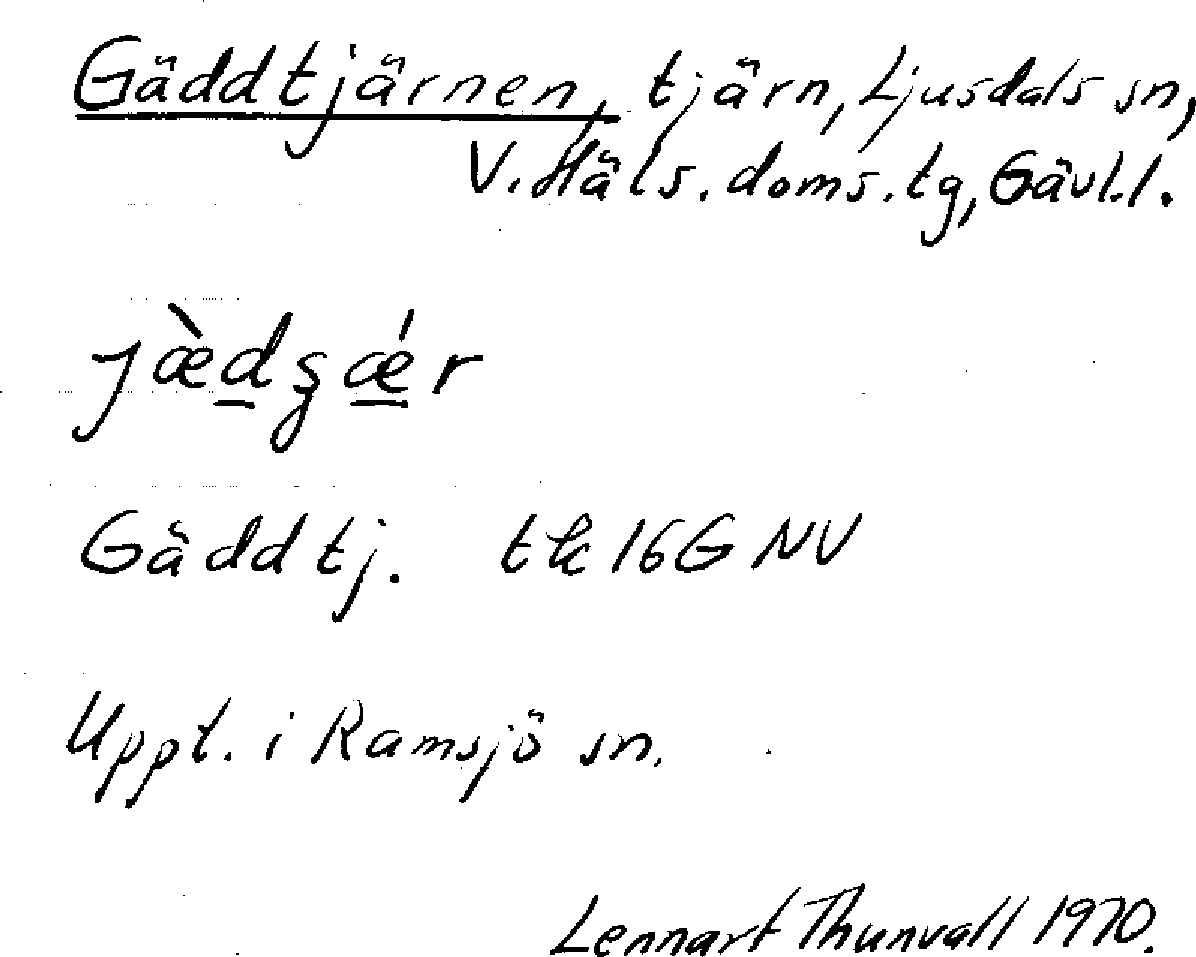 Gäddtjärnen, tjärn, Ljusdals sn,
V. Häls. doms. tg, Gävl. l.
jæ̀d̲ʂǽ̲r
Gäddtj. tk 16G NV
Uppt. i Ramsjö sn.
Lennart Thunvall 1970.